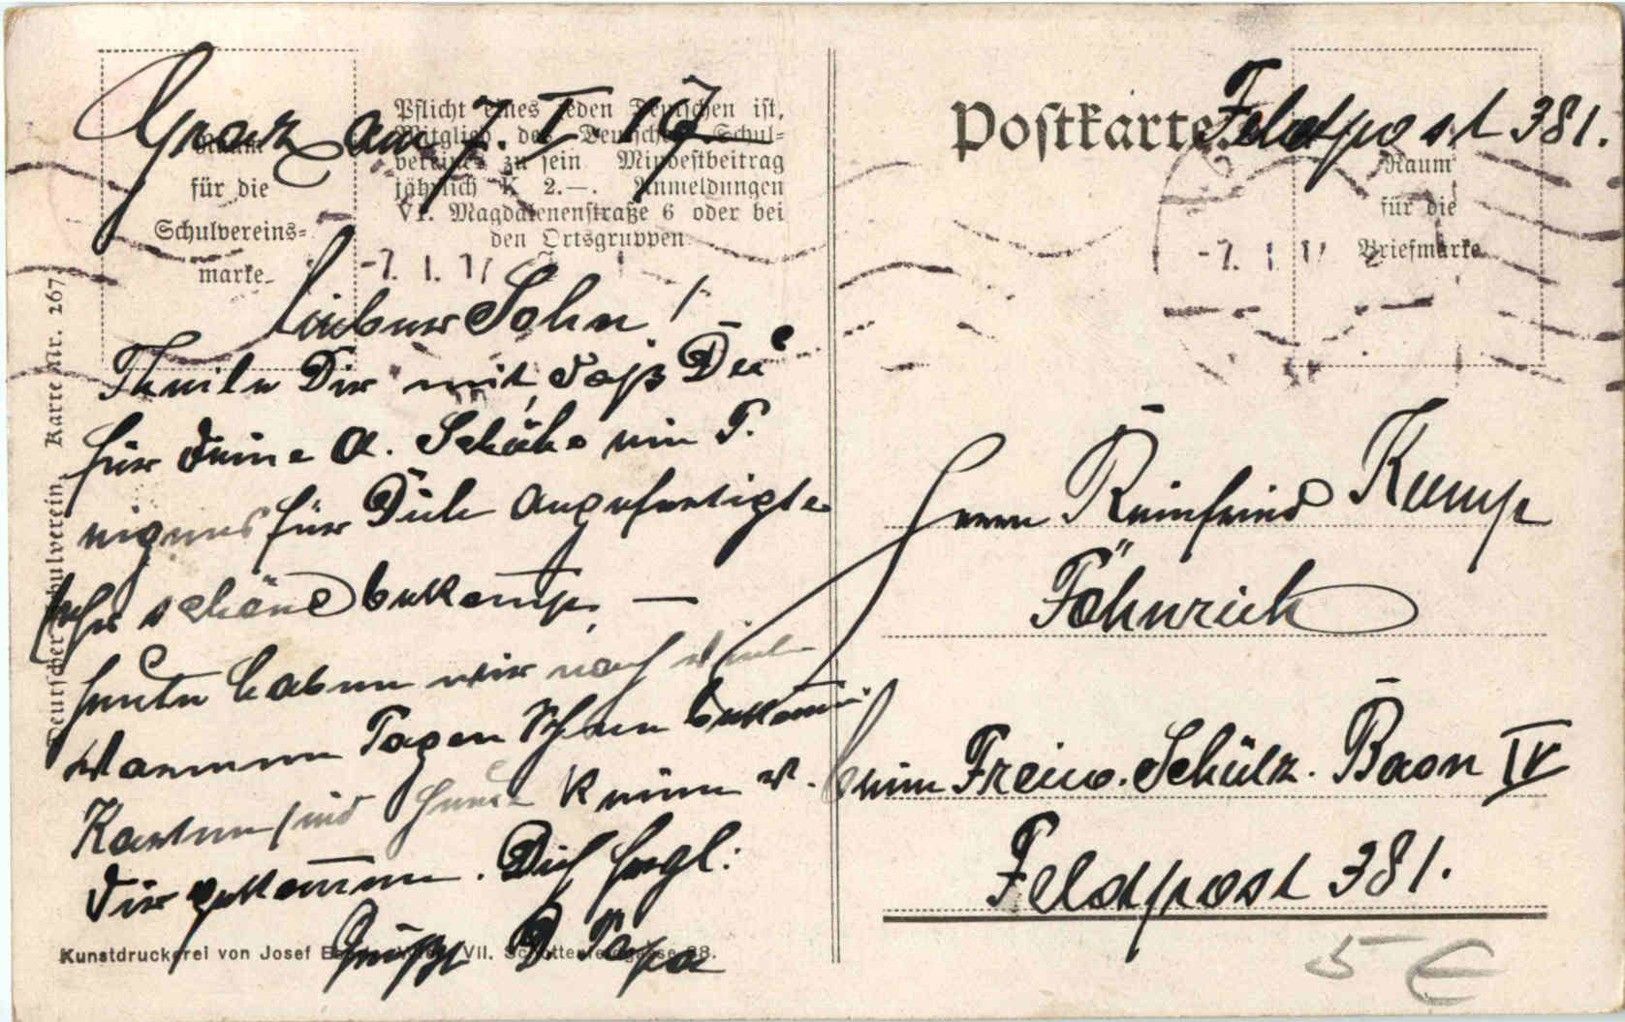 Graz am 7. I. 17
Raum
für die
Schulvereins-
marke.
Pflicht eines jeden Deutschen ist,
Mitglied des Deutschen Schul-
vereines zu sein Mindestbeitrag
jährlich K 2.—. Anmeldungen
VI. Magdalenenstraße 6 oder bei
den Ortsgruppen.
-7. I. 17
Lieber Sohn!
Theile Dir mit, daß Du
für Deine O. Schuhe ein P.
eigens für Dich angefertigte
sehr schöne bekomst. —
heute haben wir nach
warmen Tagen bekommen
Karten sind heute keine v.
Dir gekommen. Dich herzl:
Grüßt D. Papa
Deutscher Schulverein, Karte Nr. 267
Kunstdruckerei von Josef VII. Schottenfeldgasse 38.
Postkarte.
Feldpost 381.
Raum
für die
Briefmarke
-7. I. 17
Herrn Reinfried Kump
Fähnrich
beim Freiw. Schütz. Baon IV
Feldpost 381.
5 €